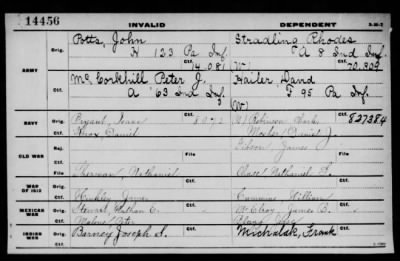 14456 INVALID DEPENDENT
Orig. Potts, John Stradling Rhodes
H 123 Pa Inf A 8 Ind Inf.
Ctf. 14081 (W) Ctf. 70.809
ARMY
Orig. Mc Corkhill Peter J. Hailer, David
A 63 Ind Inf F 95 Pa Inf
Ctf. (W)
NAVY
Orig. Bryant, Isaac 8072 Robinson Charles Ctf. 827284
Ctf. Knox, Daniel Mosher, Daniel J.
OLD WAR
Rej. Gibson, James
Ctf. File File
Sherman, Nathaniel Chace, Nathaniel
WAR OF 1812
Orig.
Ctf. Hinkley James Cummins William
MEXICAN WAR
Orig. Stewart, Nathan C. McElroy James B.
Ctf. Malone Peter
INDIAN WAR
Orig. Barney Joseph S. Michalak, Frank
Ctf.